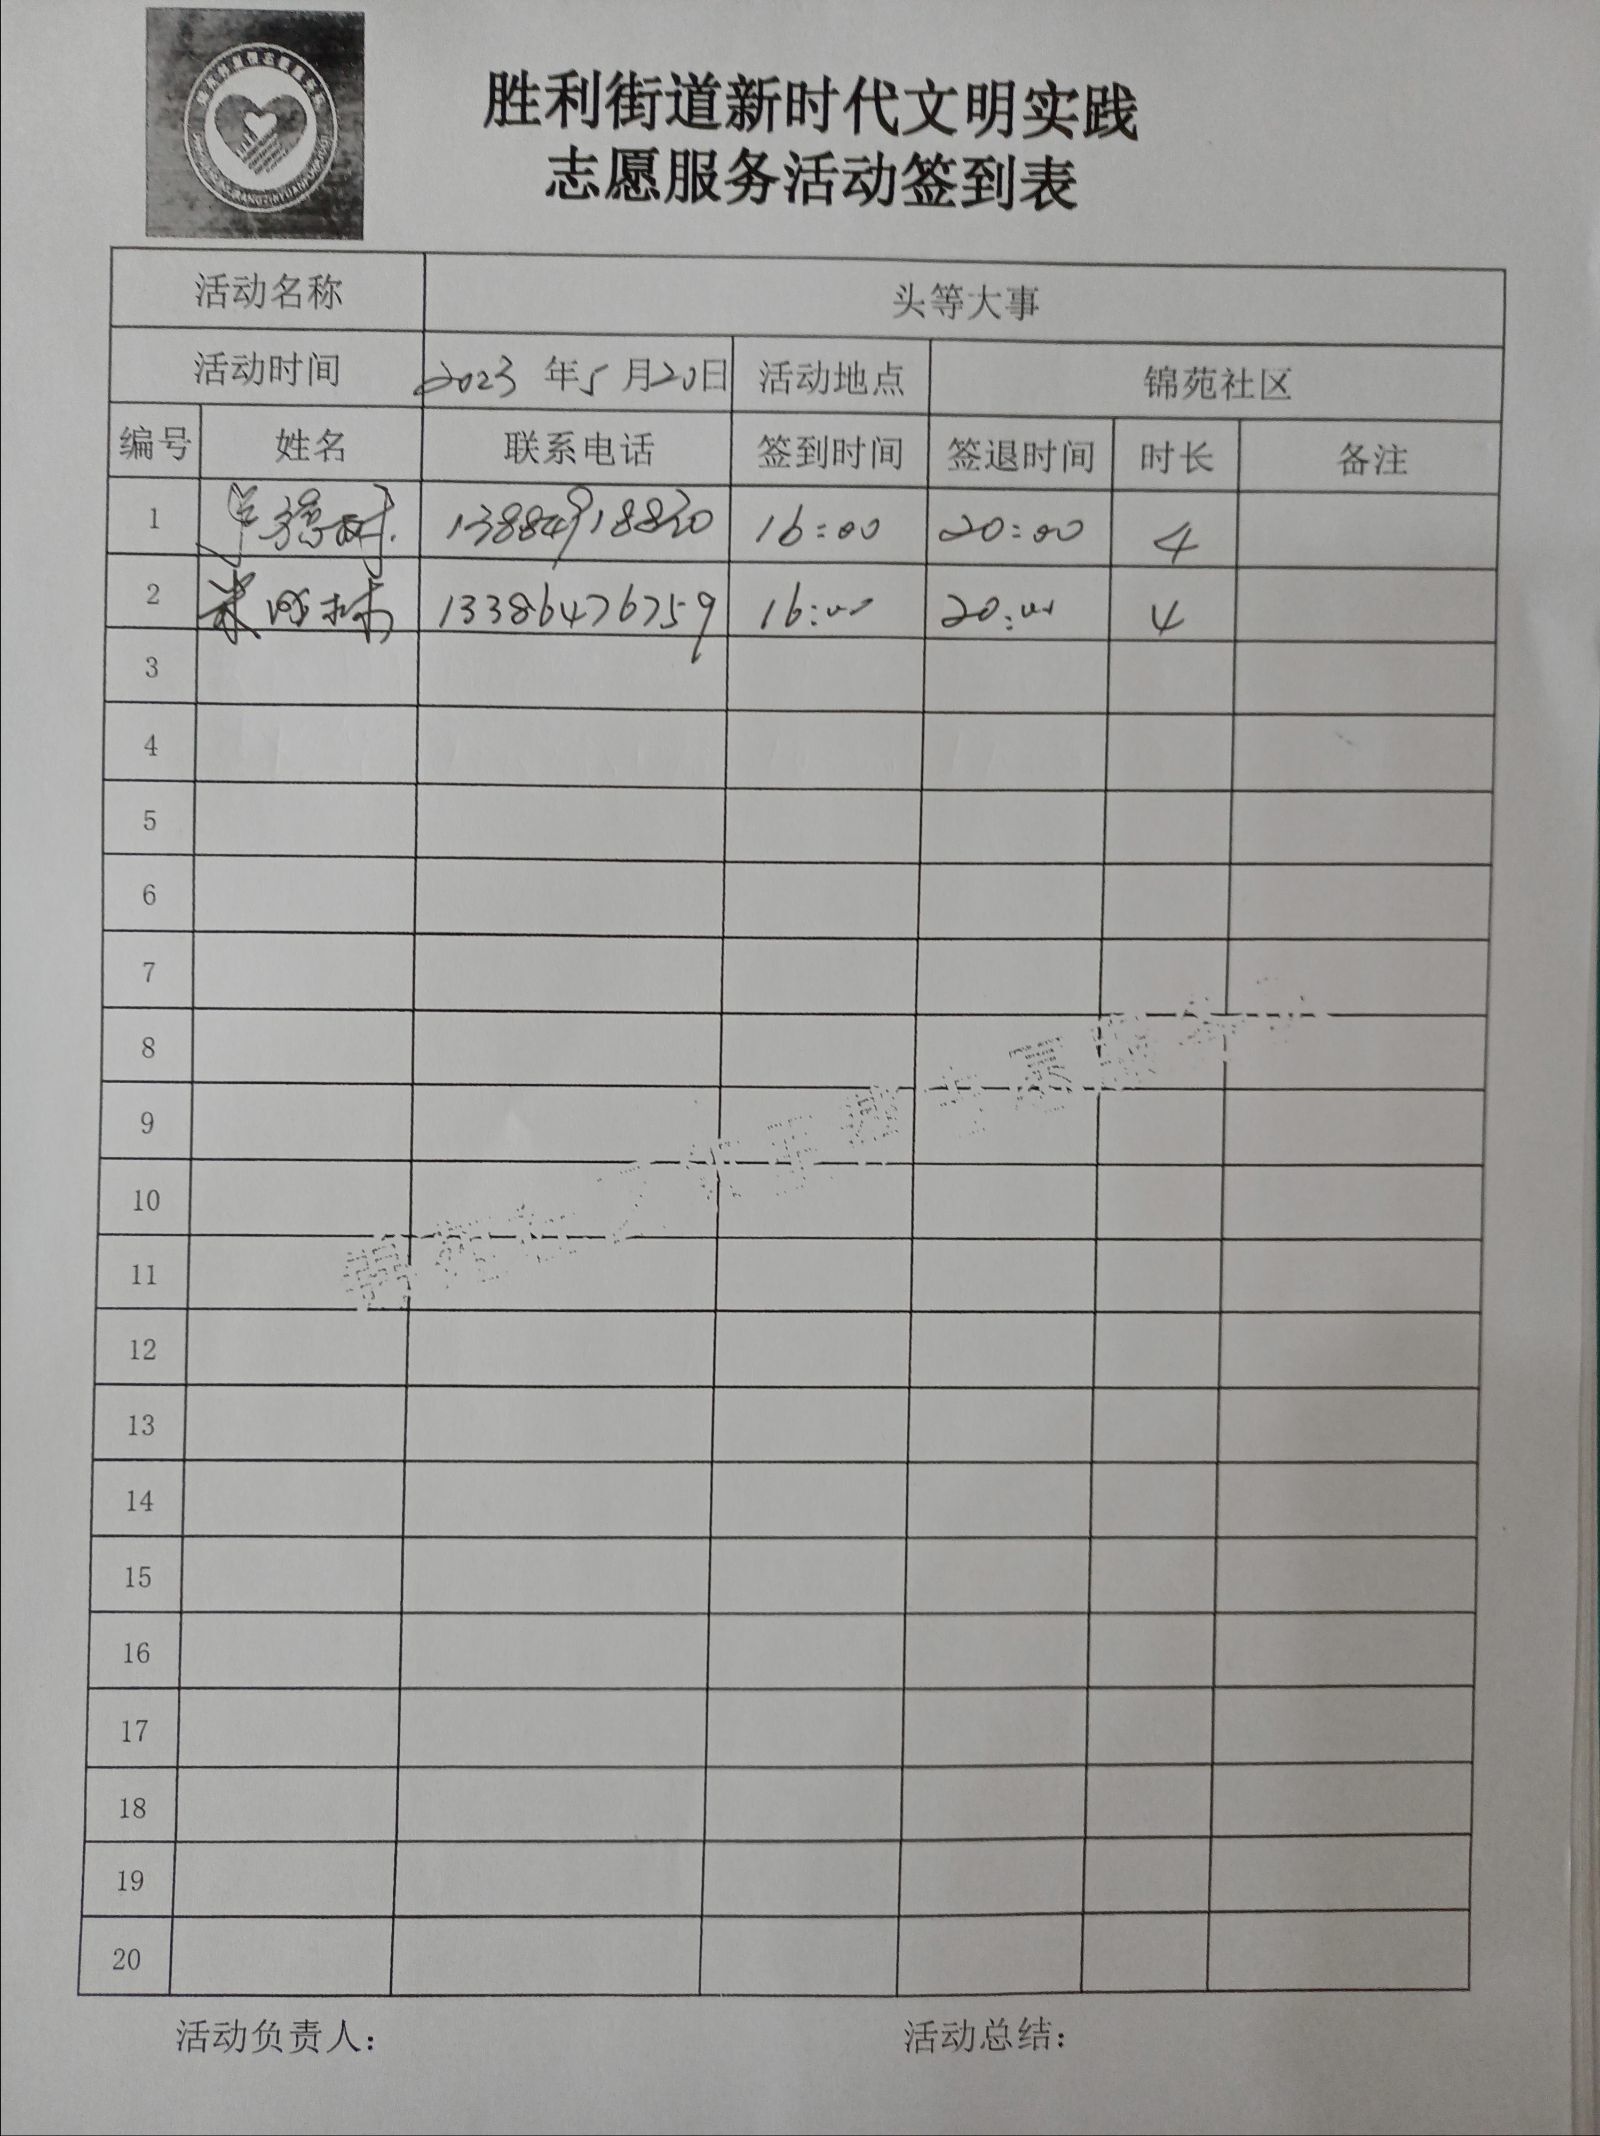 胜利街道新时代文明实践
志愿服务活动签到表
活动名称 头等大事
活动时间 2023 年 5 月 20 日 活动地点 锦苑社区
编号 姓名 联系电话 签到时间 签退时间 时长 备注
1 13884918830 16:00 20:00 4
2 13386476759 16:00 20:00 4
3
4
5
6
7
8
9
10
11
12
13
14
15
16
17
18
19
20
活动负责人： 活动总结：